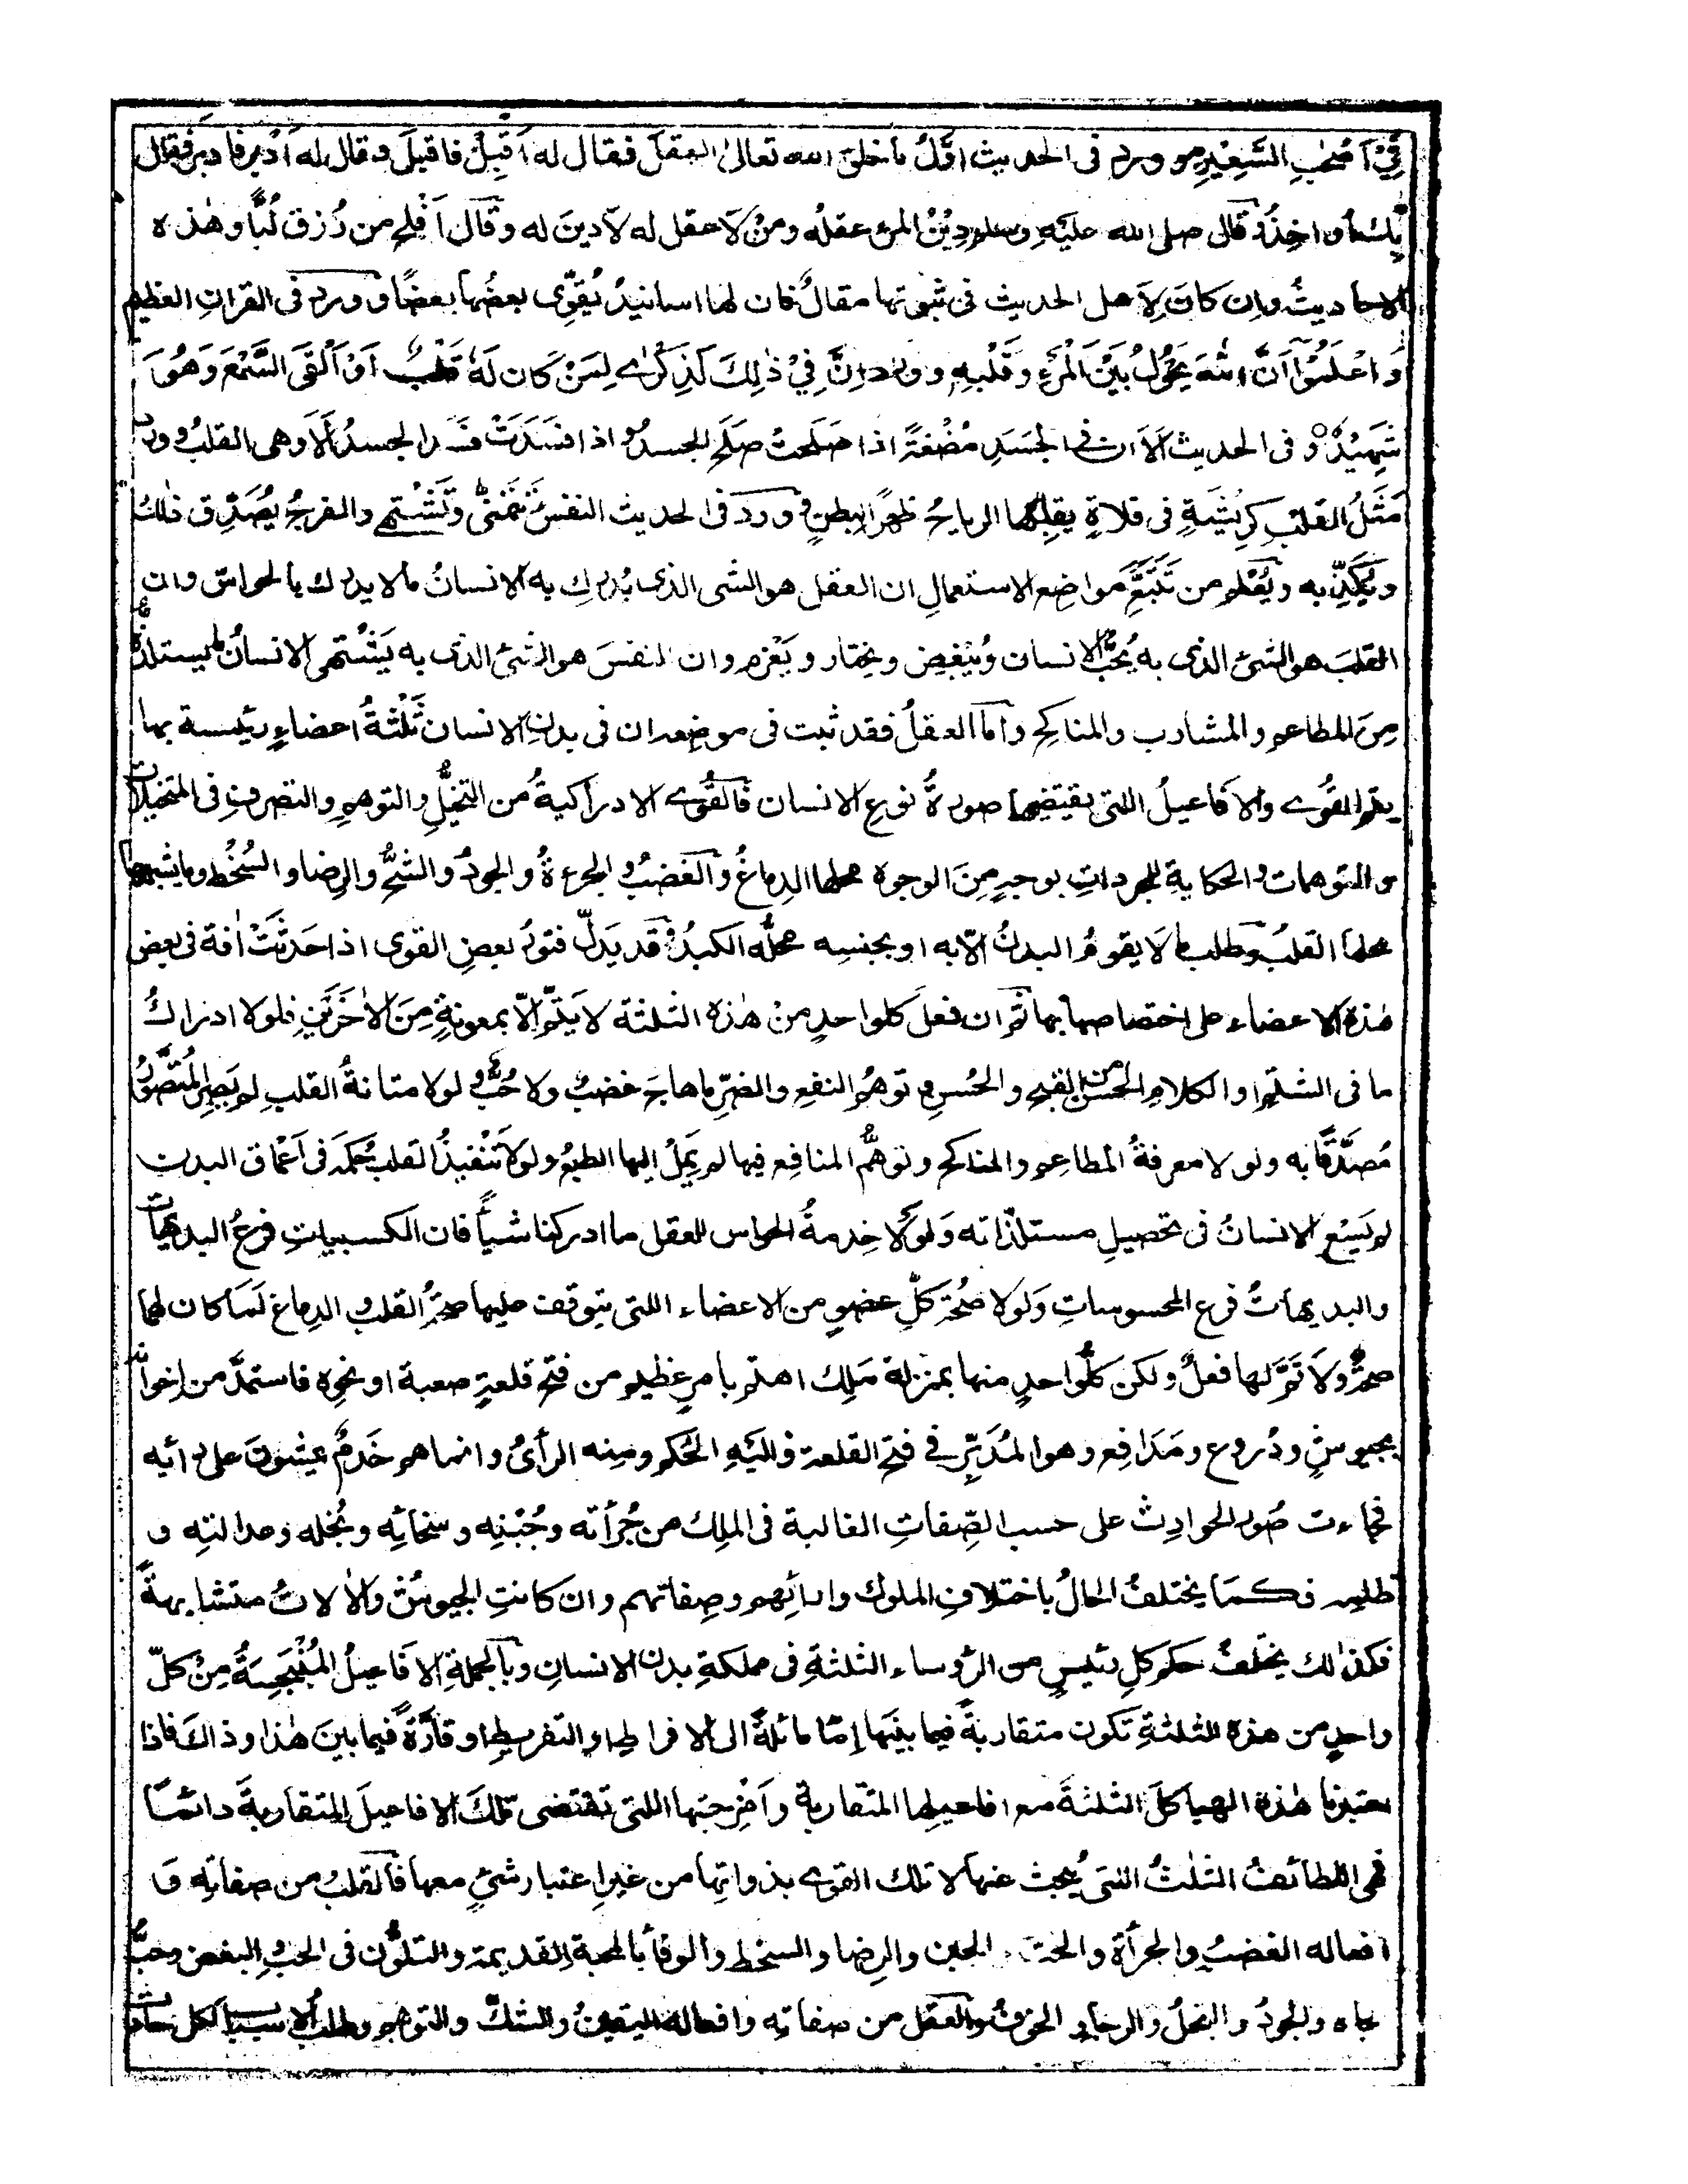 فِيْ اَصْحٰبِ السَّعِيْرِ و ورد فى الحديث اوّلُ ما خلق الله تعالىٰ العقلَ فقال له اَقْبِلْ فاقبلَ وقال له اَدْبِر فادبر فقال
بِكَ اُواخِذُ وقال صلى الله عليه وسلم دِيْنُ المرء عقلُه ومنْ لا عقل له لا دينَ له وقال اَفْلح من رُزق لُبًّا وهٰذه
الاحاديثُ وان كانَ لِاَهل الحديث فى ثبوتها مقالٌ فان لها اسانيدُ يُقوِّى بعضُها بعضًا و ورد فى القران العظيم
وَاعْلَمُوْٓا اَنَّ اللّٰهَ يَحُوْلُ بَيْنَ الْمَرْءِ وَقَلْبِهٖ و ورد اِنَّ فِيْ ذٰلِكَ لَذِكْرٰى لِمَنْ كَانَ لَهٗ قَلْبٌ اَوْ اَلْقَى السَّمْعَ وَهُوَ
شَهِيْدٌ ○ و فى الحديث اَلَا ان فى الجَسَدِ مُضْغةً اذا صَلَحتْ صَلَح الجسدُ و اذا فسَدَتْ فسَد الجسدُ اَلَا وهى القلبُ و ورد
مَثَلُ القلبِ كرِيْشَةٍ فى فلاةٍ يقلِّبُها الرياحُ ظهرًا لبطنٍ و ورد فى الحديث النفسُ تَتمَنّٰى وتَشْتهى والفرجُ يُصَدِّق ذلك
ويكذِّبه ويُعْلم من تَتَبُّعِ مواضع الاستعمالِ ان العقل هو الشى الذى يُدرِك به الانسانُ مالا يدرك بالحواسّ وان
القلبَ هو الشىُ الذى به يُحِبُّ الانسان ويُبْغِض ويختار ويَعْزم وان النفسَ هو الشىُ الذى به يَشْتهى الانسانُ ما يستلذُّه
مِنَ المطاعم والمشارب والمناكح واما العقلُ فقد ثبت فى موضعه ان فى بدنِ الانسان ثَلٰثةُ اعضاءٍ رئيسة بها
يتم القُوٰى والافاعيلُ اللتى يقتضيها صورةُ نوعِ الانسان فالقُوٰى الادراكيةُ من التخيُّلِ والتوهمِ والتصرفِ فى المتخيلات
والمتوهمات والحكاية للمجرداتِ بوجهٍ مِنَ الوجوه محلها الدِماغُ والغضبُ والجرءةُ والجودُ والشُّحُّ والرضا والسُّخْط وما يشبهها
محلها القلبُ وطلبُ ما لا يقومُ البدنُ الّا به او بجنسه محلُّه الكبدُ وقد يدلّ فتورُ بعضِ القوى اذا حَدثَتْ اٰفة فى بعض
هٰذه الاعضاء على اختصاصها بها ثم ان فعلَ كلوا حدٍ منْ هٰذه الثلثة لا يَتمّ الّا بمعونةٍ مِنَ الاٰخَرَيْنِ فلولا ادراكُ
ما فى الشتم او الكلامِ الحسن من القبح والحُسنِ و توهمُ النفعِ والضرّ ما هاجَ غضبٌ ولا حُبٌّ و لولا متانةُ القلبِ لم يَصِر المتصوَّرُ
مُصَدَّقًا به ولو لا معرفةُ المطاعم والمناكح وتوهُّمُ المنافعِ فيها لم يَمِلْ اليها الطبعُ ولولا تَنْفيذُ القلبِ حُكمَه فى اَعْماق البدن
لم يَسْعَ الانسانُ فى تحصيلِ مستلذّاته وَلولا خِدمةُ الحواس للعقل ما ادركنا شيأً فان الكسبياتِ فرعُ البديهيات
والبديهياتُ فرع المحسوساتِ وَلولا صحّة كلّ عضوٍ من الاعضاء اللتى يتوقف عليها صحةُ القلبِ و الدِماغ لَمَا كان لهما
صحةٌ ولا تَمَّ لهما فعلٌ ولكن كلُّوا حدٍ منها بمنزلة مَلِك اهتم بامرٍ عظيم من فتح قلعةٍ صعبة او نحوه فاستمدَّ من اخوانه
بجيوشٍ ودُروع ومَدَافِع وهو المُدَبِّر فى فتح القلعة واليَهِ الحُكم ومنه الرأىُ وانما هم خَدمٌ يمشونَ على رائيه
فجاءت صُور الحوادِث على حسب الصِّفاتِ الغالبة فى الملِك من جُرأته وجُبْنِه وسخائِه وبُخله وعدالتِه و
ظلمِه فكما يختلفُ الحالُ باختلافِ الملوك واٰرائهم وصفاتهم وان كانتِ الجيوشُ والاٰلاتُ متشابهةً
فكذٰلك يختلفُ حكم كلِ رئيسٍ من الرؤساء الثلثةِ فى مملكةِ بدن الانسانِ وبالجملةِ الافاعيلُ المُنْبَجِسَةُ مِنْ كلّ
واحدٍ من هذه الثلثةِ تكون متقاربةً فيما بينَها اِمّا مائلةً الى الافراطِ او التفريطِ او قارّةً فيما بينَ هٰذا وذاكَ فاذا
عتبرنا هٰذه الهياكلَ الثلثةَ مع افاعيلها المتقاربة واَمْزِجتِها اللتى تقتضى تلكَ الافاعيلَ المتقاربةَ دائمًا
فهى اللطائفُ الثلٰثُ اللتى يُبحث عنها لا تلك القوٰى بذواتِها من غيرِ اعتبار شىٍٔ معها فالقلبُ من صفاتِه وَ
افعاله الغضبُ والجرأة والحبّ والجبن والرِضا والسخط والوفأ بالمحبة القديمة والتلوُّن فى الحبِّ والبغض وحبُّ
جاه والجودُ والبخلُ والرجاء والخوفُ والعقل من صفاتِه وافعاله اليقينُ والشكّ والتوهم وطلبُ الاسبابِ لكل حادث